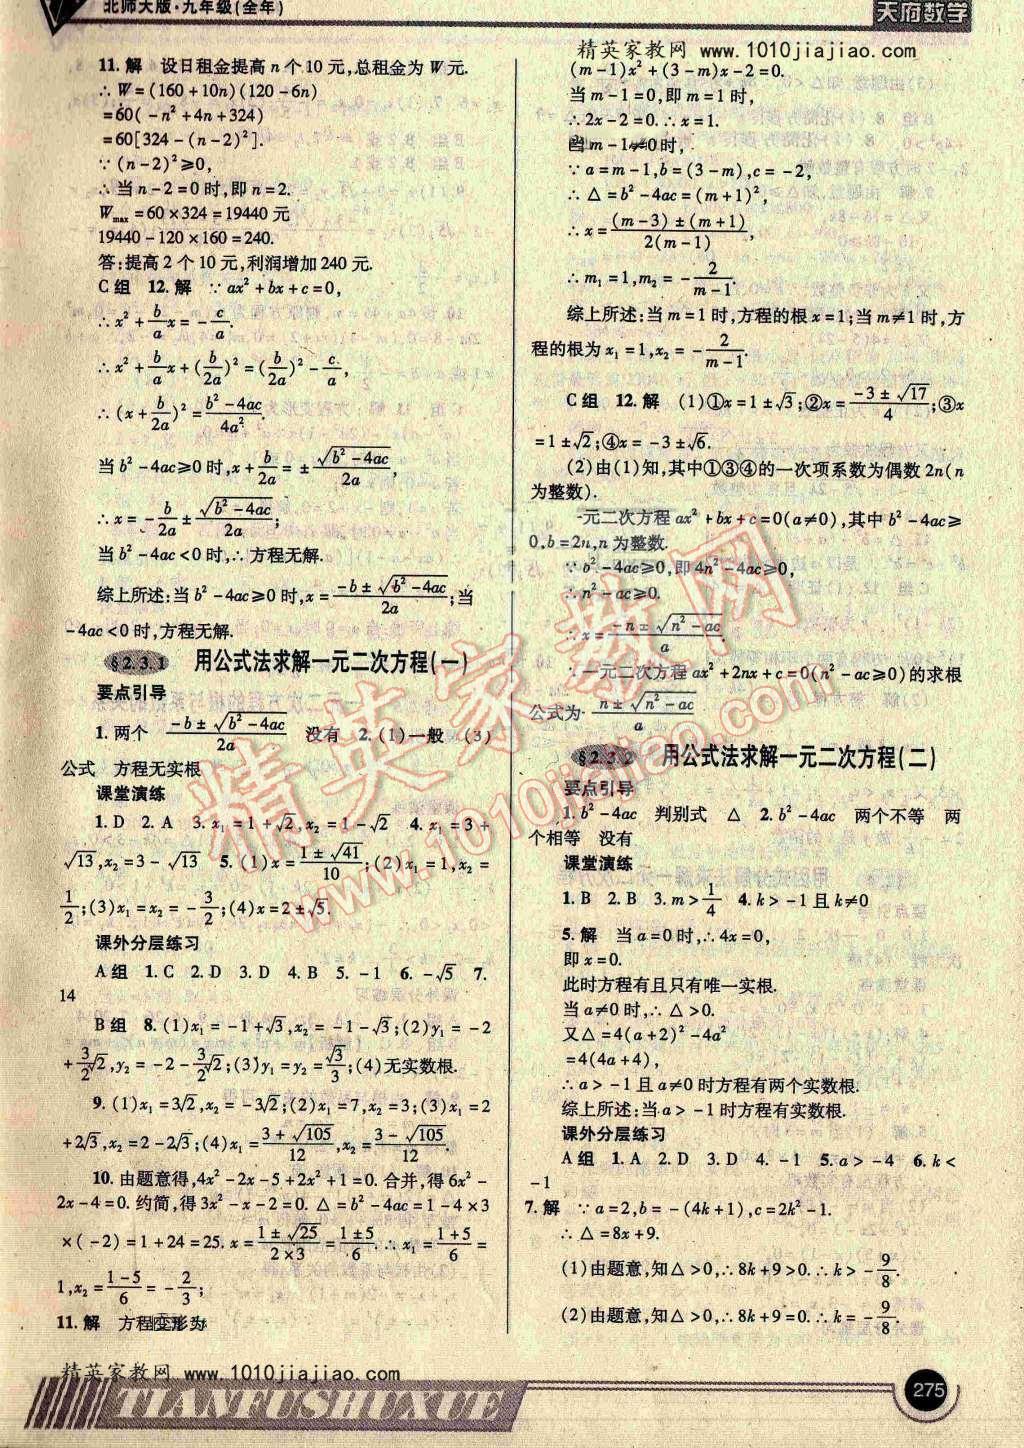 北师大版·九年级(全年)
天府数学
精英家教网 www.1010jiajiao.com
11. 解 设日租金提高 n 个 10 元,总租金为 W 元.
∴ W=(160+10n)(120-6n)
=60(-n²+4n+324)
=60[324-(n-2)²].
∵ (n-2)²≥0,
∴ 当 n-2=0 时,即 n=2.
Wmax=60×324=19440 元
19440-120×160=240.
答:提高 2 个 10 元,利润增加 240 元.
C 组 12. 解 ∵ ax²+bx+c=0,
∴ x²+b/a x=-c/a.
∴ x²+b/a x+(b/2a)²=(b/2a)²-c/a,
∴ (x+b/2a)²=(b²-4ac)/4a².
当 b²-4ac≥0 时,x+b/2a=±√(b²-4ac)/2a.
∴ x=-b/2a±√(b²-4ac)/2a;
当 b²-4ac<0 时,∴ 方程无解.
综上所述:当 b²-4ac≥0 时,x=(-b±√(b²-4ac))/2a;当
-4ac<0 时,方程无解.
§2.3.1 用公式法求解一元二次方程(一)
要点引导
1. 两个 (-b±√(b²-4ac))/2a 没有 2. (1)一般 (3)
公式 方程无实根
课堂演练
1. D 2. A 3. x₁=1+√2,x₂=1-√2 4. x₁=3+
√13,x₂=3-√13 5. (1)x=(1±√41)/10;(2)x₁=1,x₂=
1/2;(3)x₁=x₂=-3/2;(4)x=2±√5.
课外分层练习
A 组 1. C 2. D 3. D 4. B 5. -1 6. -√5 7.
14
B 组 8. (1)x₁=-1+√3,x₂=-1-√3;(2)y₁=-2
+3/2√2,y₂=-2-3/2√2;(3)y₁=y₂=√3/2;(4)无实数根.
9. (1)x₁=3√2,x₂=-3√2;(2)x₁=7,x₂=3;(3)x₁=2
+2√3,x₂=2-2√3;(4)x₁=(3+√105)/12,x₂=(3-√105)/12.
10. 由题意得,4x²-2x-5+2x²+1=0. 合并,得 6x²-
2x-4=0. 约简,得 3x²-x-2=0. △=b²-4ac=1-4×3
×(-2)=1+24=25. x=(1±√25)/(2×3)=(1±5)/6. ∴ x₁=(1+5)/6=
1,x₂=(1-5)/6=-2/3;
11. 解 方程变形为
(m-1)x²+(3-m)x-2=0.
当 m-1=0,即 m=1 时,
∴ 2x-2=0. ∴ x=1.
当 m-1≠0 时,
∵ a=m-1,b=(3-m),c=-2,
∴ △=b²-4ac=(m+1)²,
∴ x=((m-3)±(m+1))/2(m-1),
∴ m₁=1,m₂=-2/(m-1).
综上所述:当 m=1 时,方程的根 x=1;当 m≠1 时,方
程的根为 x₁=1,x₂=-2/(m-1).
C 组 12. 解 (1)①x=1±√3;②x=(-3±√17)/4;③x
=1±√2;④x=-3±√6.
(2)由(1)知,其中①③④的一次项系数为偶数 2n(n
为整数).
一元二次方程 ax²+bx+c=0(a≠0),其中 b²-4ac≥
0,b=2n,n 为整数.
∵ b²-4ac≥0,即 4n²-4ac≥0,
∴ n²-ac≥0.
∴ x=(-n±√(n²-ac))/a.
∴ 一元二次方程 ax²+2nx+c=0(n²-ac≥0)的求根
公式为 (n±√(n²-ac))/a.
§2.3.2 用公式法求解一元二次方程(二)
要点引导
1. b²-4ac 判别式 △ 2. b²-4ac 两个不等 两
个相等 没有
课堂演练
1. B 2. B 3. m>1/4 4. k>-1 且 k≠0
5. 解 当 a=0 时,∴ 4x=0,
即 x=0.
此时方程有且只有唯一实根.
当 a≠0 时,∴ △>0.
又△=4(a+2)²-4a²
=4(4a+4),
∴ a>-1 且 a≠0 时方程有两个实数根.
综上所述:当 a>-1 时方程有实数根.
课外分层练习
A 组 1. A 2. D 3. D 4. -1 5. a>-4 6. k<
-1
7. 解 ∵ a=2,b=-(4k+1),c=2k²-1.
∴ △=8k+9.
(1)由题意,知△>0,∴ 8k+9>0. ∴ k>-9/8.
(2)由题意,知△>0,∴ 8k+9=0. ∴ k=-9/8.
精英家教网 www.1010jiajiao.com
TIANFUSHUXUE
275
精英家教网
www.1010jiajiao.com